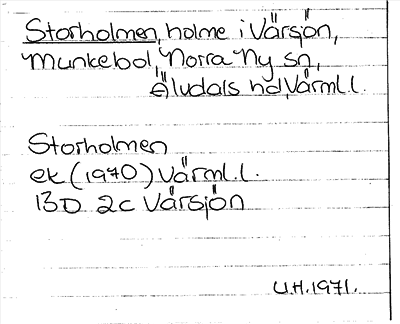 Storholmen, holme i Värsjön,
Munkebol, Norra Ny sn,
Älvdals hd, Värml.l.
Storholmen
ek (1970) Värml.l.
13D 2c Värsjön
U.H. 1971.